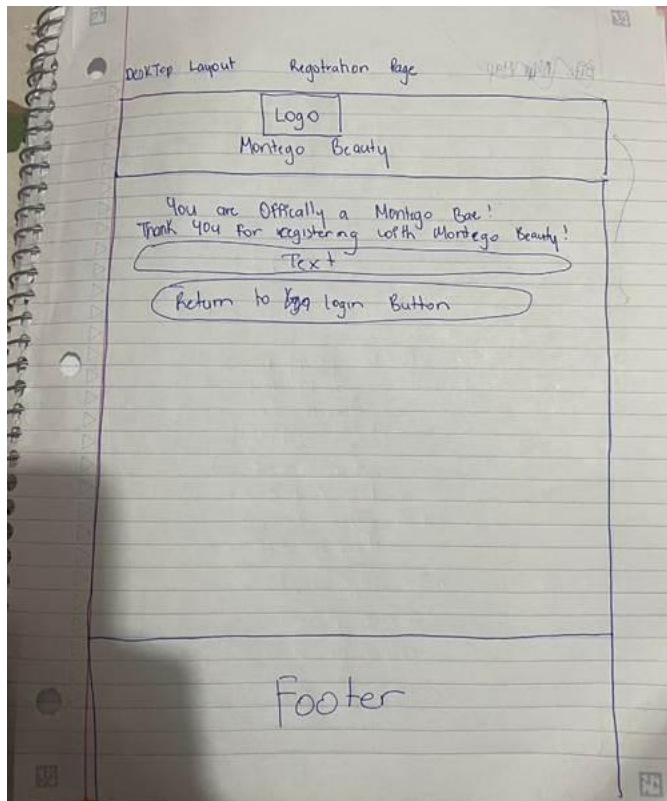 DeskTop Layout Regotration Page
Logo
Montego Beauty
You are Offically a Montego Bae!
Thank you for registering with Montego Beauty!
Text
Return to login Button
Footer